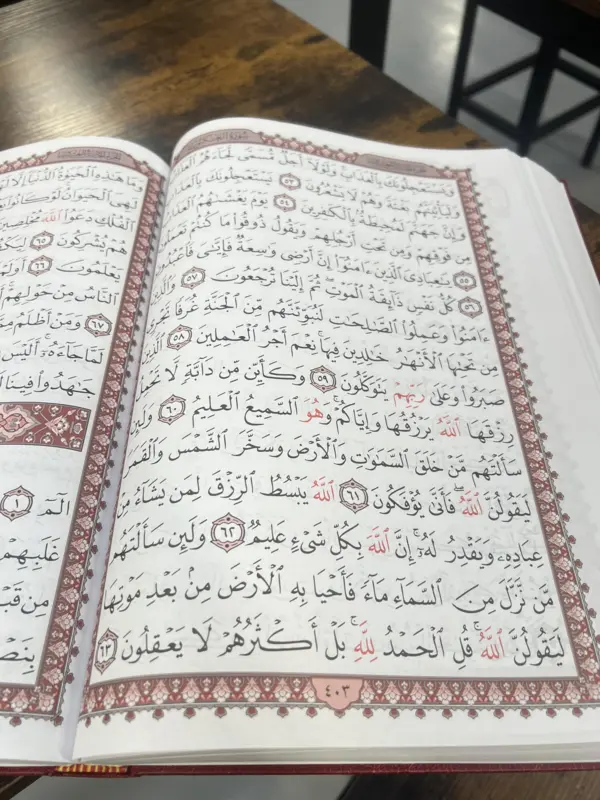 وَيَسْتَعْجِلُونَكَ بِٱلْعَذَابِ وَلَوْلَآ أَجَلٌ مُّسَمًّى لَّجَآءَهُمُ ٱلْعَذَابُ
وَلَيَأْتِيَنَّهُم بَغْتَةً وَهُمْ لَا يَشْعُرُونَ ٥٣ يَسْتَعْجِلُونَكَ بِٱلْعَذَابِ
وَإِنَّ جَهَنَّمَ لَمُحِيطَةٌۢ بِٱلْكَٰفِرِينَ ٥٤ يَوْمَ يَغْشَىٰهُمُ ٱلْعَذَابُ
مِن فَوْقِهِمْ وَمِن تَحْتِ أَرْجُلِهِمْ وَيَقُولُ ذُوقُوا۟ مَا كُنتُمْ تَعْمَلُونَ
٥٥ يَٰعِبَادِىَ ٱلَّذِينَ ءَامَنُوٓا۟ إِنَّ أَرْضِى وَٰسِعَةٌ فَإِيَّٰىَ فَٱعْبُدُونِ
٥٦ كُلُّ نَفْسٍ ذَآئِقَةُ ٱلْمَوْتِ ثُمَّ إِلَيْنَا تُرْجَعُونَ ٥٧ وَٱلَّذِينَ
ءَامَنُوا۟ وَعَمِلُوا۟ ٱلصَّٰلِحَٰتِ لَنُبَوِّئَنَّهُم مِّنَ ٱلْجَنَّةِ غُرَفًا تَجْرِى
مِن تَحْتِهَا ٱلْأَنْهَٰرُ خَٰلِدِينَ فِيهَا نِعْمَ أَجْرُ ٱلْعَٰمِلِينَ ٥٨ ٱلَّذِينَ
صَبَرُوا۟ وَعَلَىٰ رَبِّهِمْ يَتَوَكَّلُونَ ٥٩ وَكَأَيِّن مِّن دَآبَّةٍ لَّا تَحْمِلُ
رِزْقَهَا ٱللَّهُ يَرْزُقُهَا وَإِيَّاكُمْ وَهُوَ ٱلسَّمِيعُ ٱلْعَلِيمُ ٦٠ وَلَئِن
سَأَلْتَهُم مَّنْ خَلَقَ ٱلسَّمَٰوَٰتِ وَٱلْأَرْضَ وَسَخَّرَ ٱلشَّمْسَ وَٱلْقَمَرَ
لَيَقُولُنَّ ٱللَّهُ فَأَنَّىٰ يُؤْفَكُونَ ٦١ ٱللَّهُ يَبْسُطُ ٱلرِّزْقَ لِمَن يَشَآءُ مِنْ
عِبَادِهِۦ وَيَقْدِرُ لَهُۥٓ إِنَّ ٱللَّهَ بِكُلِّ شَىْءٍ عَلِيمٌ ٦٢ وَلَئِن سَأَلْتَهُم
مَّن نَّزَّلَ مِنَ ٱلسَّمَآءِ مَآءً فَأَحْيَا بِهِ ٱلْأَرْضَ مِنۢ بَعْدِ مَوْتِهَا
لَيَقُولُنَّ ٱللَّهُ قُلِ ٱلْحَمْدُ لِلَّهِ بَلْ أَكْثَرُهُمْ لَا يَعْقِلُونَ ٦٣
٤٠٣
وَمَا هَٰذِهِ ٱلْحَيَوٰةُ ٱلدُّنْيَآ إِلَّا
لَهِىَ ٱلْحَيَوَانُ لَوْ كَانُوا۟
ٱلْفُلْكِ دَعَوُا۟ ٱللَّهَ مُخْلِصِينَ
هُمْ يُشْرِكُونَ ٦٥
يَعْلَمُونَ ٦٦ أَوَلَمْ
ٱلنَّاسُ مِنْ حَوْلِهِمْ
٦٧ وَمَنْ أَظْلَمُ
لَمَّا جَآءَهُۥٓ أَلَيْسَ
جَٰهَدُوا۟ فِينَا
الٓمٓ ١
غَلَبِهِمْ
مِن قَبْلُ
بِنَصْرِ